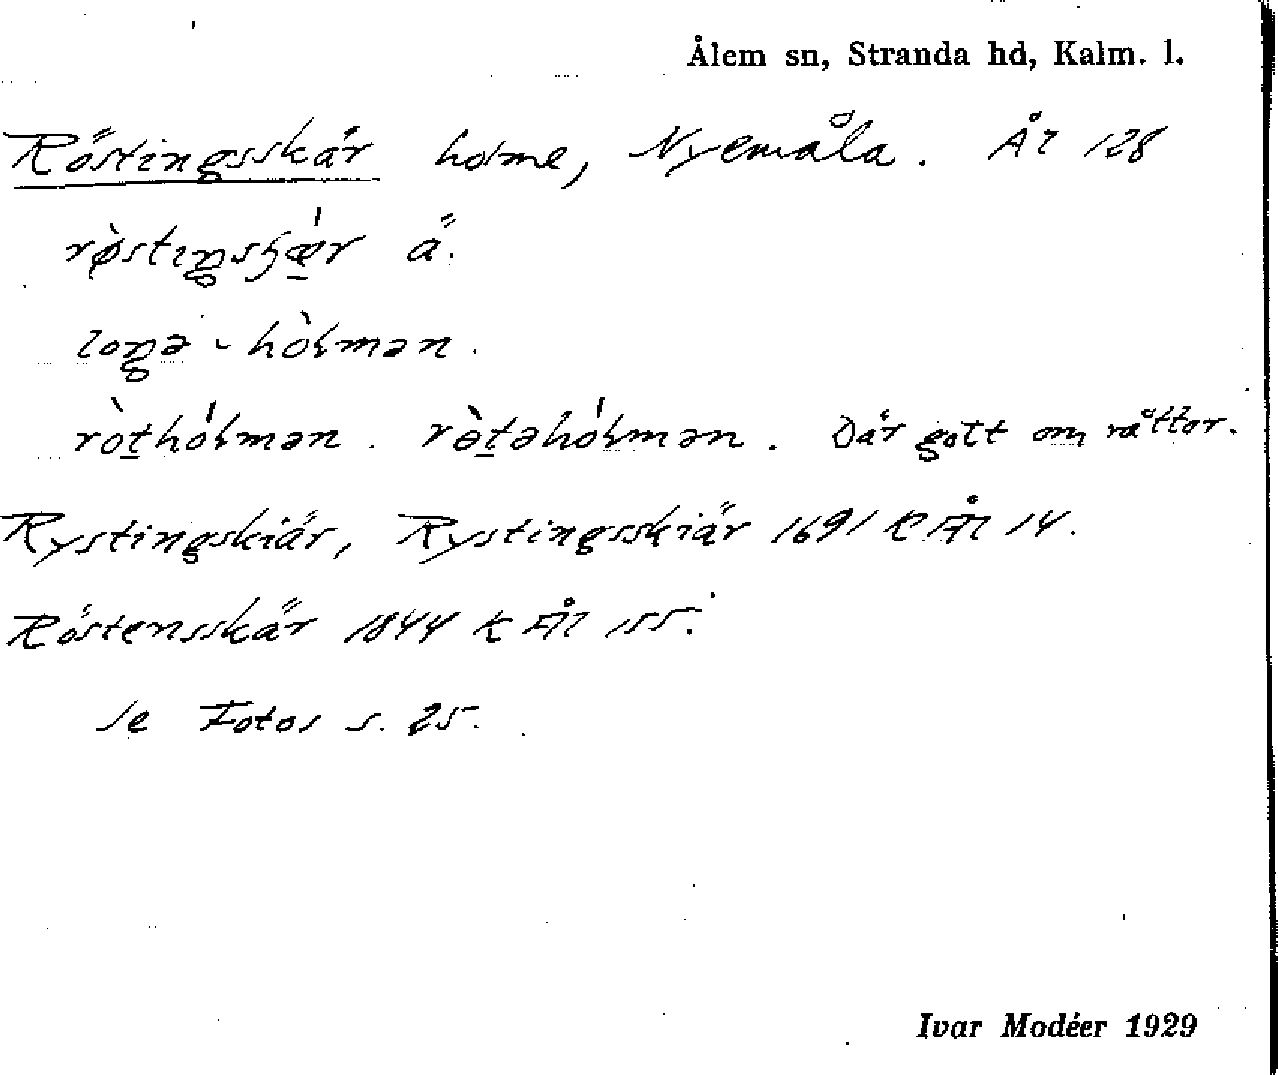 Ålem sn, Stranda hd, Kalm. l.
Röstingsskär holme, Nyemåla. Ål 128
rø̀stıŋsʃǽr ä.
loŋə - hòɫmən.
ròthóɫmən. rɵ̀təhóɫmən. Där gott om råttor.
Rystingskiär, Rystingsskiär 1691 K Ål 14.
Röstensskär 1844 K Ål 155.
Se Fotos s. 25.
Ivar Modéer 1929